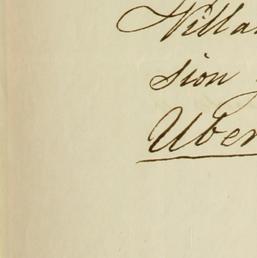 Willa
sion
Uber